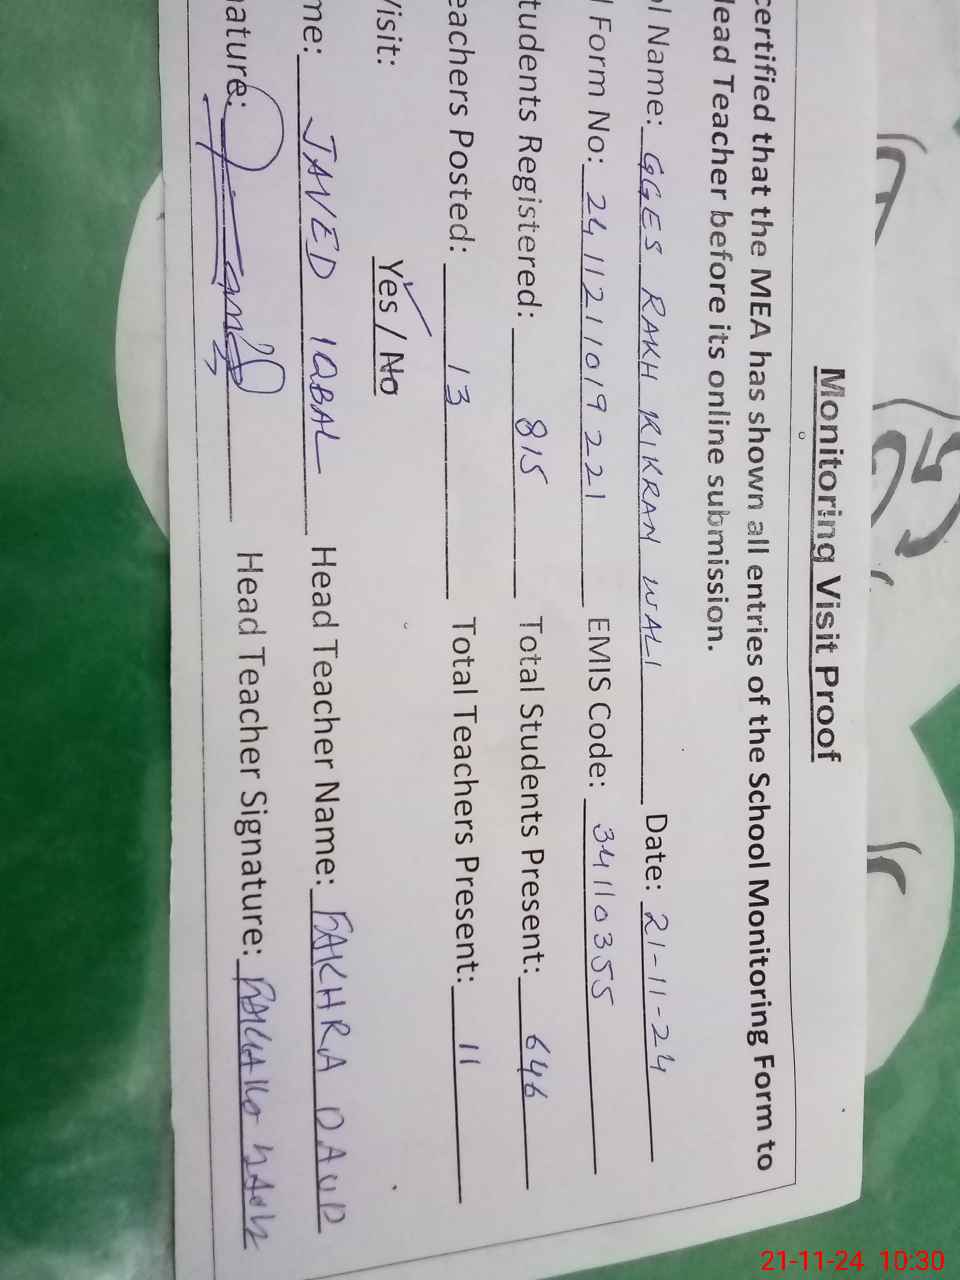 Monitoring Visit Proof
certified that the MEA has shown all entries of the School Monitoring Form to
Head Teacher before its online submission.
ol Name: GGES RAKH KIKRAN WALI Date: 21-11-24
l Form No: 2411211019221 EMIS Code: 34110355
tudents Registered: 815 Total Students Present: 646
eachers Posted: 13 Total Teachers Present: 11
Visit: Yes / No
me: JAVED IQBAL Head Teacher Name: FAKHRA DAUD
nature: Head Teacher Signature:
21-11-24 10:30